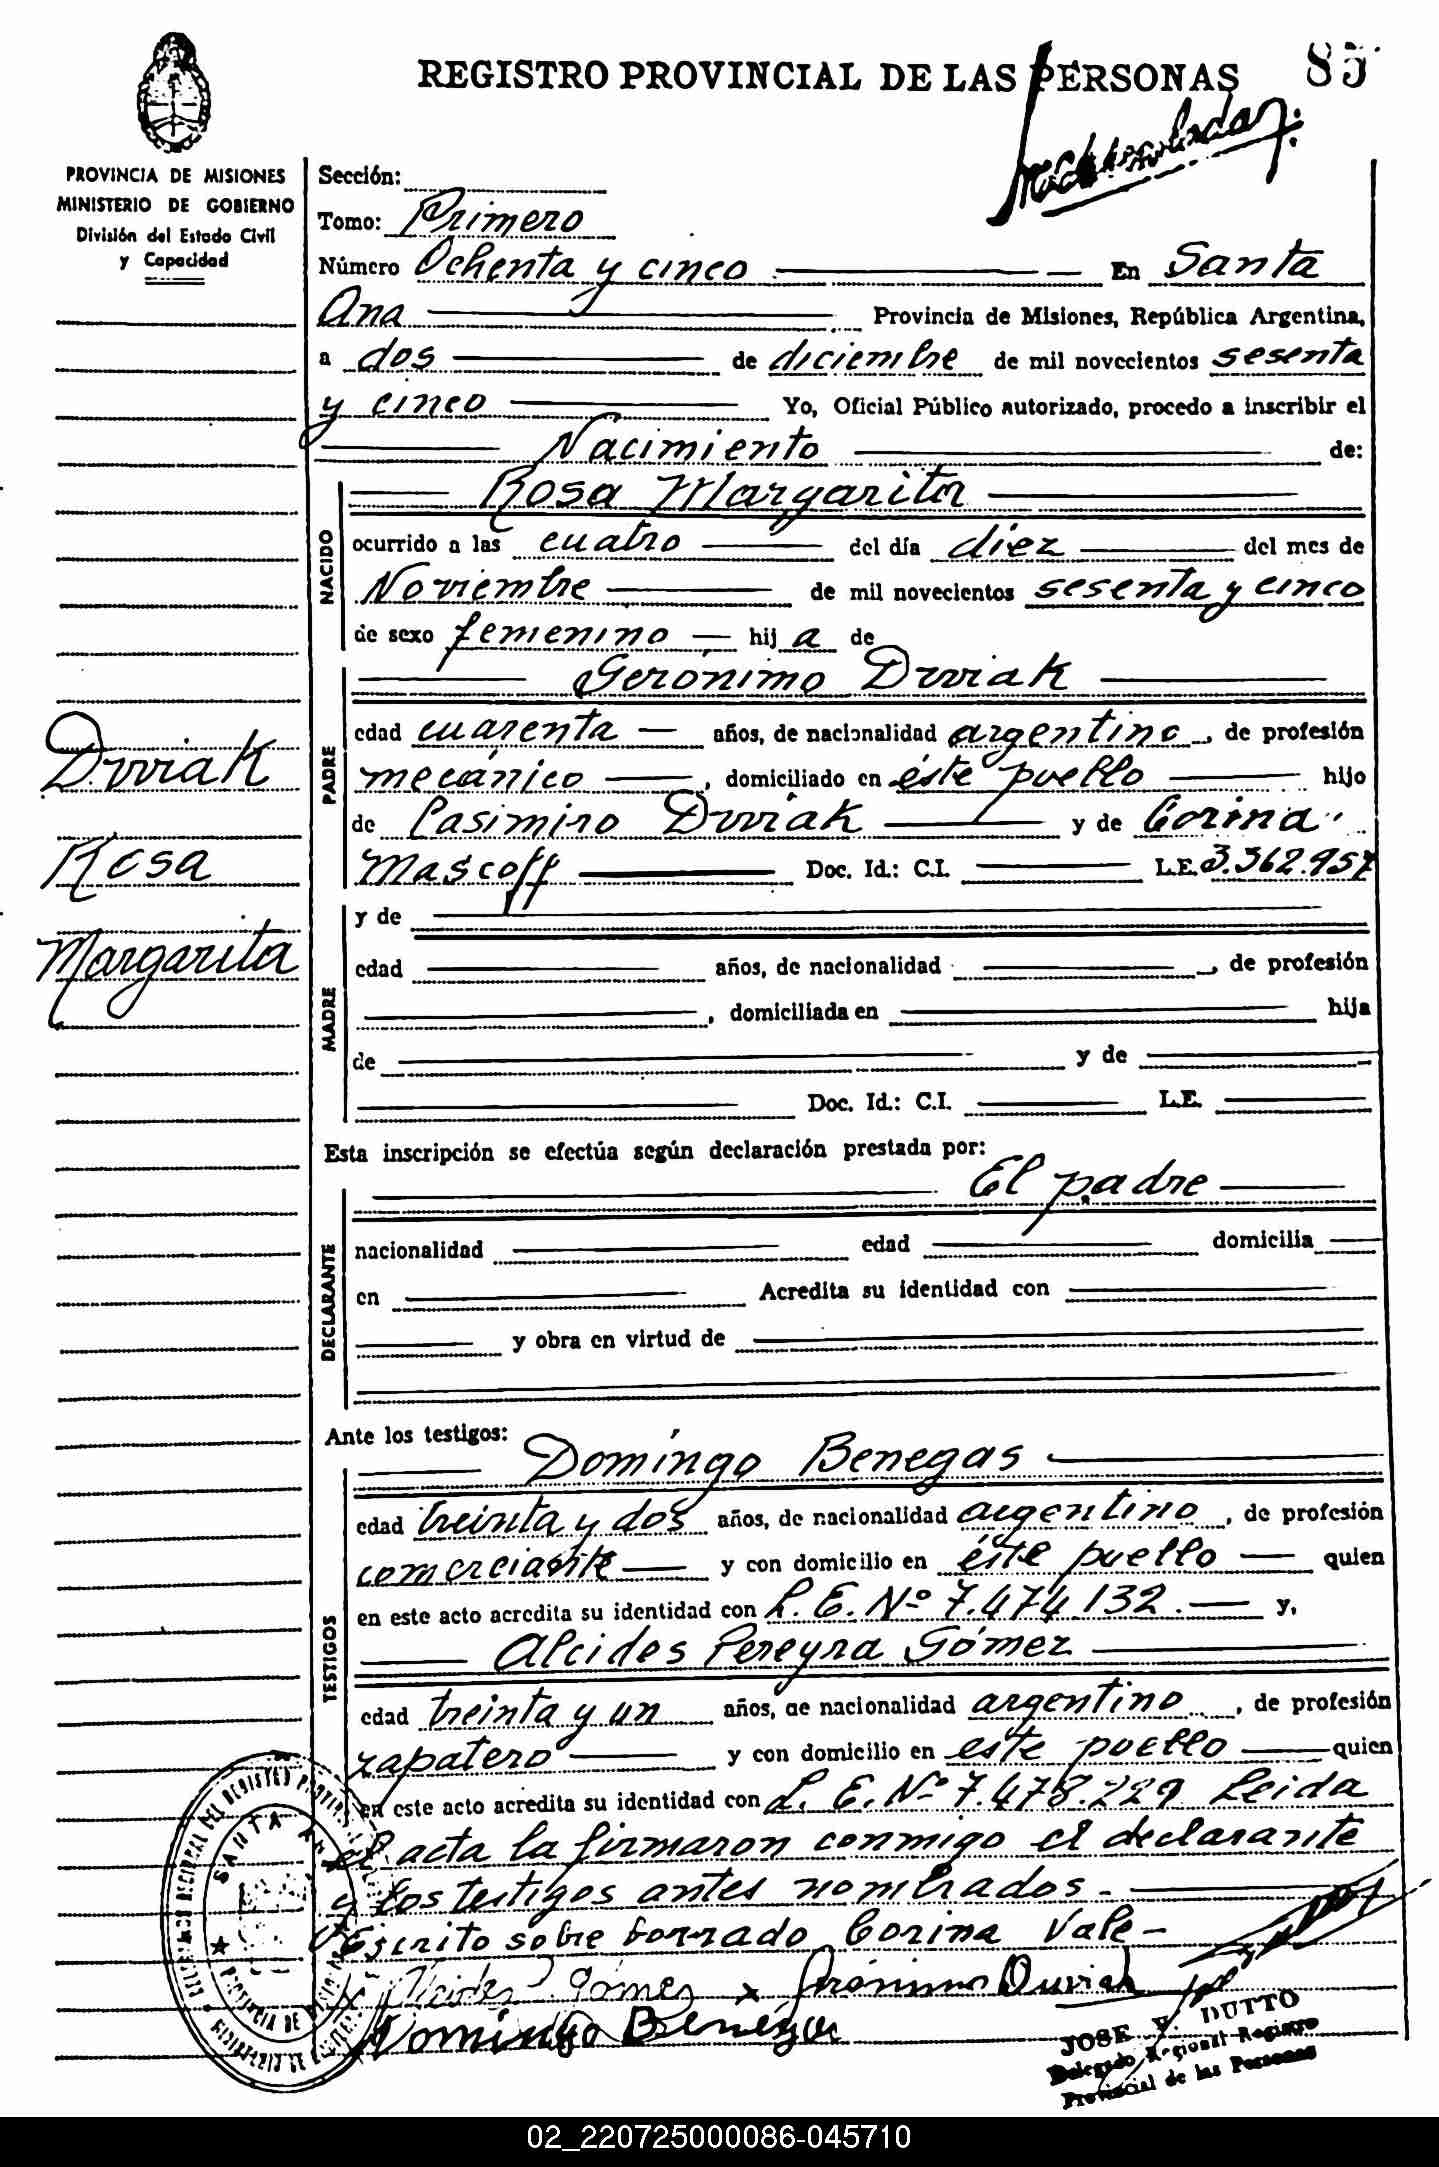 REGISTRO PROVINCIAL DE LAS PERSONAS
85
PROVINCIA DE MISIONES
MINISTERIO DE GOBIERNO
División del Estado Civil
y Capacidad
Sección:
Tomo: Primero
Número Ochenta y cinco En Santa
Ana Provincia de Misiones, República Argentina,
a dos de diciembre de mil novecientos sesenta
y cinco Yo, Oficial Público autorizado, procedo a inscribir el
Nacimiento de:
NACIDO
Rosa Margarita
ocurrido a las cuatro del día diez del mes de
Noviembre de mil novecientos sesenta y cinco
de sexo femenino hij a de
PADRE
Gerónimo Duviak
edad cuarenta años, de nacionalidad argentino, de profesión
mecánico, domiciliado en éste pueblo hijo
de Casimiro Duviak y de Corina
Mascoff Doc. Id.: C.I. L.E. 3.362.957
Duviak
Rosa
Margarita
MADRE
y de
edad años, de nacionalidad, de profesión
, domiciliada en hija
de y de
Doc. Id.: C.I. L.E.
Esta inscripción se efectúa según declaración prestada por:
DECLARANTE
El padre
nacionalidad edad domicilia
en Acredita su identidad con
y obra en virtud de
Ante los testigos:
TESTIGOS
Domingo Benegas
edad treinta y dos años, de nacionalidad argentino, de profesión
comerciante y con domicilio en éste pueblo quien
en este acto acredita su identidad con L.E. Nº 7.474.132. y,
Alcides Pereyra Gómez
edad treinta y un años, de nacionalidad argentino, de profesión
zapatero y con domicilio en este pueblo quien
en este acto acredita su identidad con L.E. Nº 7.478.229 Leida
el acta la firmaron conmigo el declarante
y los testigos antes nombrados.
Escrito sobre borrado Corina Vale
Alcides P. Gómez x Gerónimo Duviak
Domingo Benégas
JOSE V. DUTTO
Delegado Regional Registro
Provincial de las Personas
SANTA ANA
02_220725000086-045710